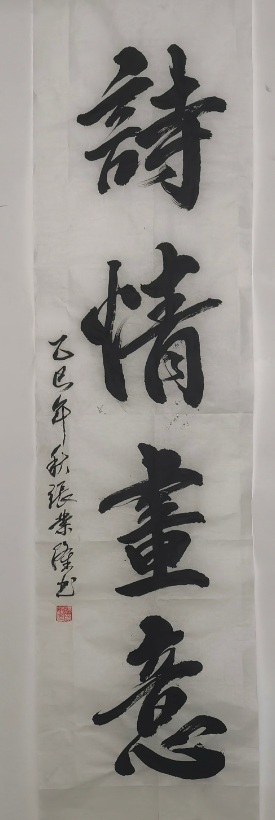 詩情畫意
乙巳年秋張業隆书